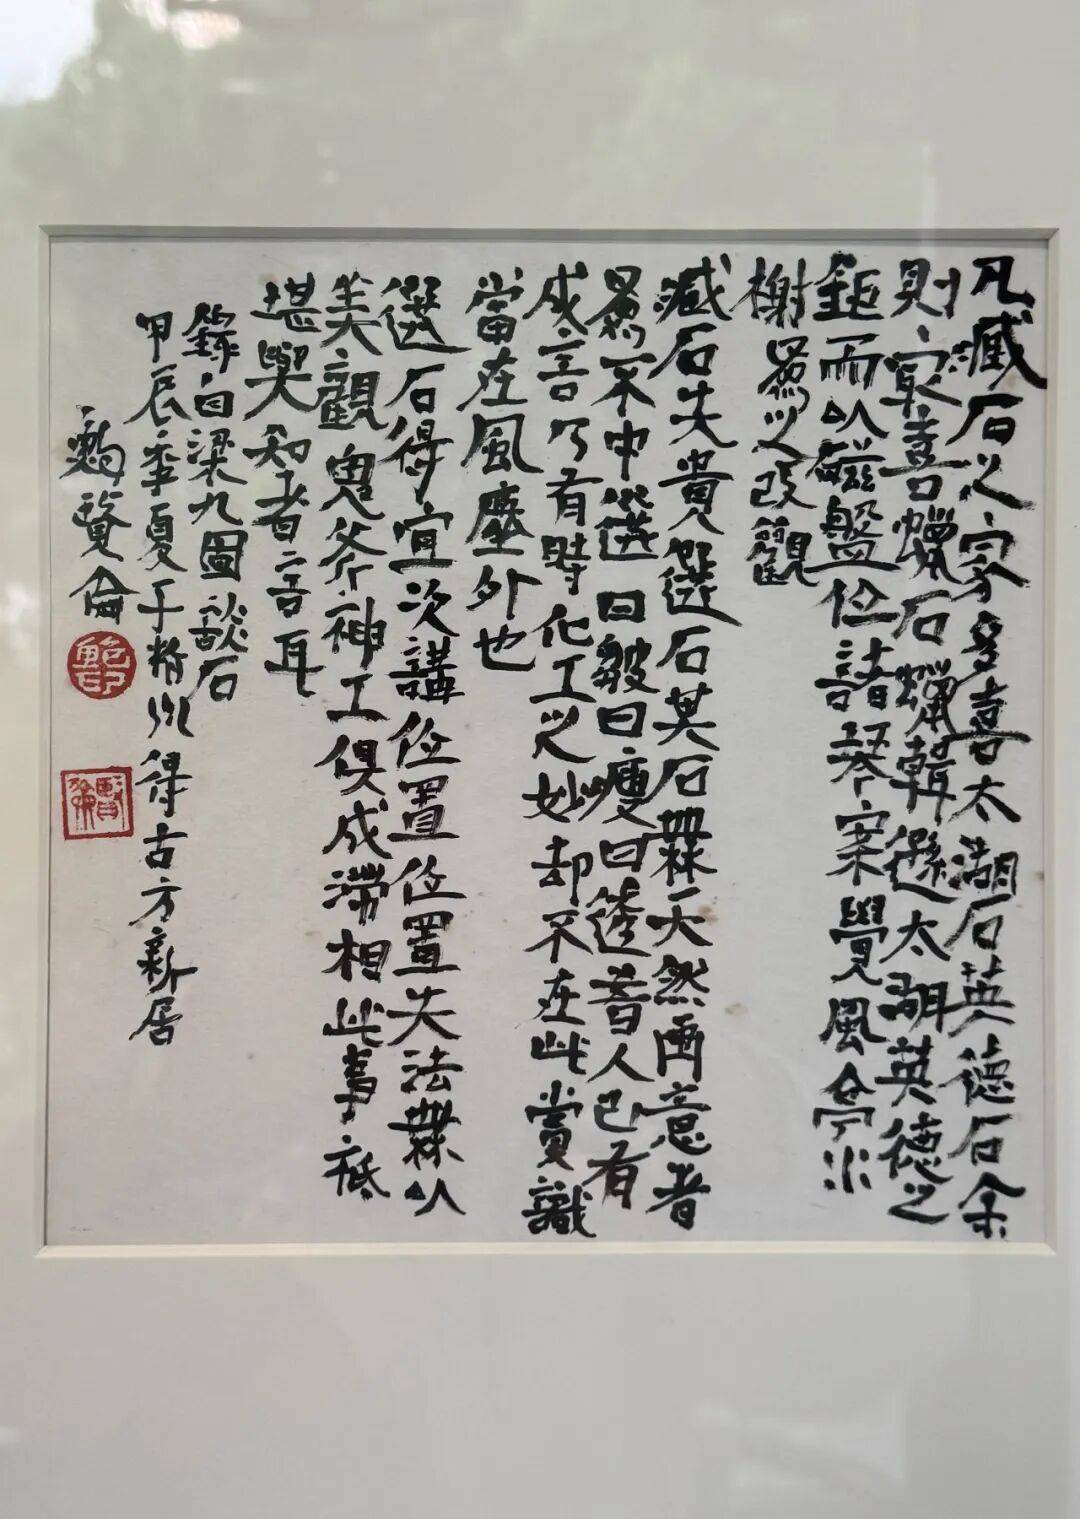 凡藏石之家多喜太湖石英德石余
則寂喜蠟石蠟韓遜太湖英德之
鉅而以磁盤位諸琴案覺風亭水
榭爲之改觀
藏石先貴選石其石無天然画意者
爲不中選曰皺曰瘦曰透昔人已有
成言乃有時化工之妙却不在此賞識
當在風塵外也
選石得宜次講位置位置失法無以
美觀鬼斧神工俱成滯相此事祗
堪與知者言耳
錄自梁九圖談石
甲辰季夏于 得古方新居
賢倫